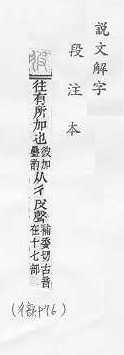 說文解字
段注本
彼
往有所加也彼加疊韵从彳皮聲補委切古音在十七部
(彳部P76)